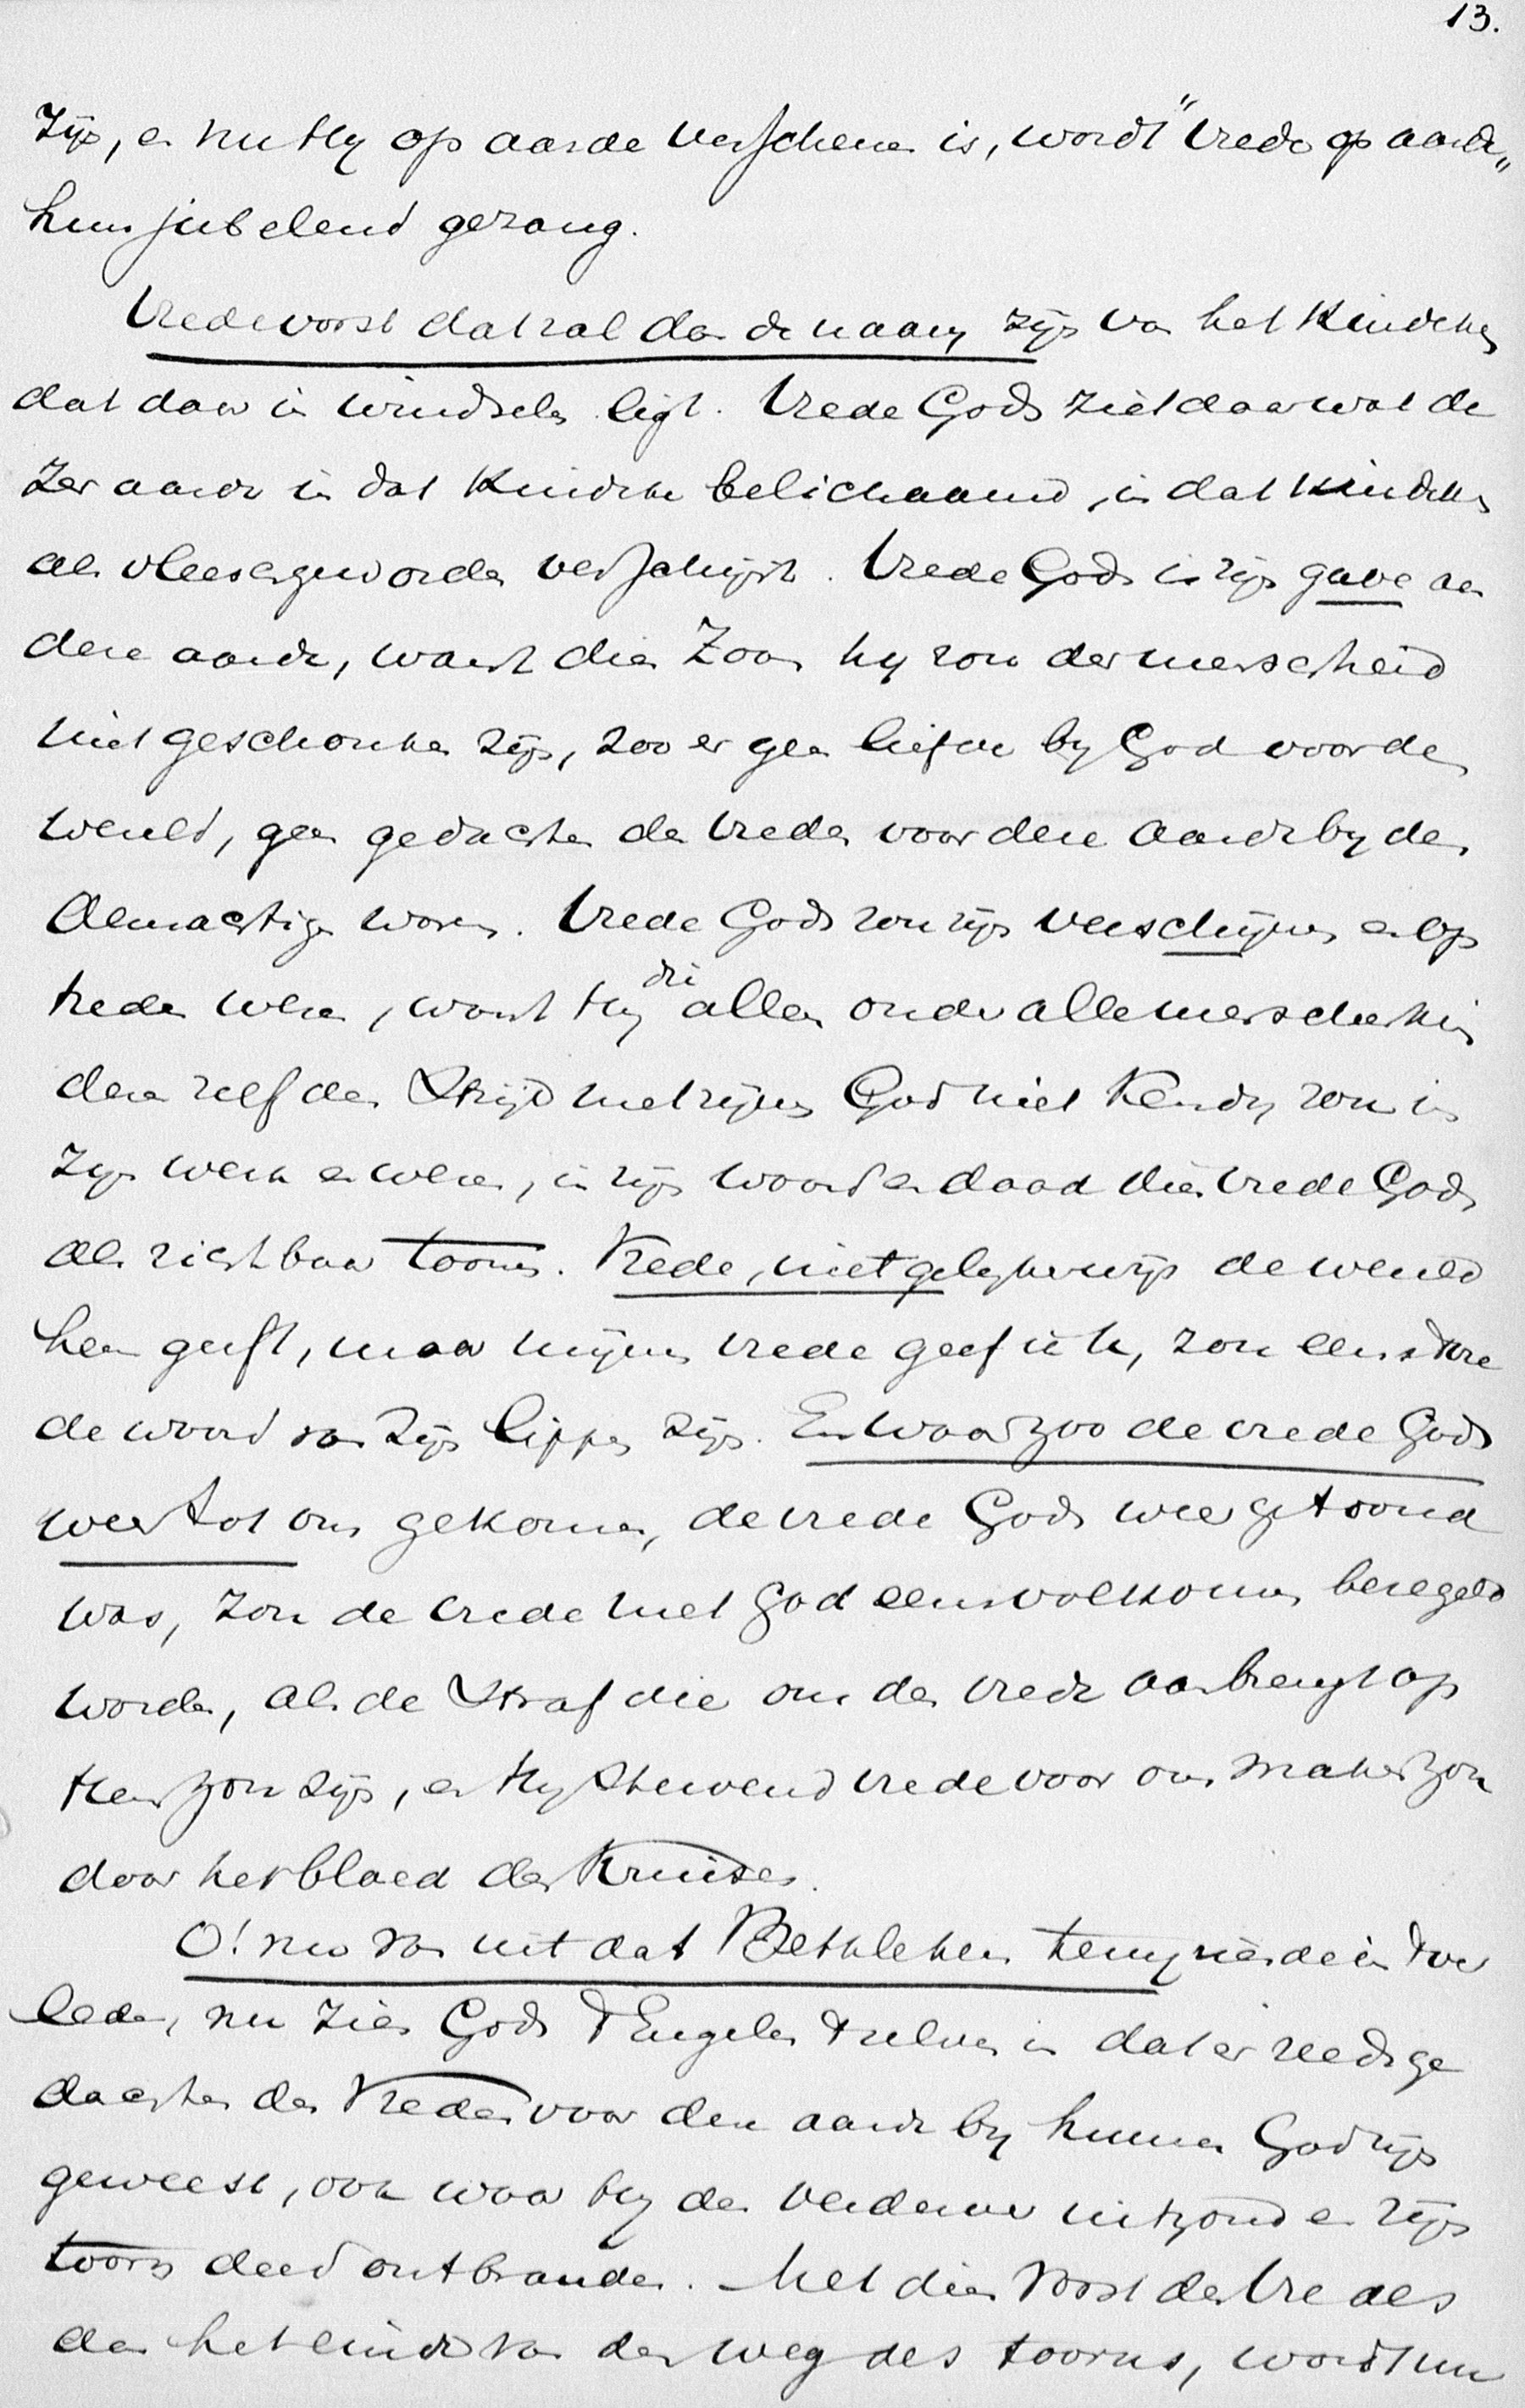 13.
zijn, en nu Hij op aarde verschenen is, wordt "vrede op aarde"
hun jubelend gezang.
Vredevorst dat zal dan de naam zijn van het Kindeke
dat daar in windselen ligt. Vrede Gods ziet daar wat de
zer aarde in dat Kindeke belichaamd, in dat Kindeke
als vleeschgeworden verschijnt. Vrede Gods in zijn gave aan
deze aarde, want die Zoon hij zou der menschheid
niet geschonken zijn, zoo er geen liefde bij God voor de
wereld, geen gedachten des vredes voor deze aarde bij den
Almachtige waren. Vrede Gods zou zijn verschijnen en op
treden wezen, want Hij die alleen onder alle menschenkin
deren zelf den Strijd met zijnen God niet Kende, zou in
zijn werk en wezen, in zijn woord en daad die vrede Gods
als zichtbaar toonen. Vrede, niet gelijkerwijs de wereld
hem geeft, maar mijnen vrede geef ik u, zou eens der
de woord van Zijn lippen zijn. En waar zoo de vrede Gods
weer tot ons gekomen, de vrede Gods weer getoond
was, zou de vrede met God eens volkomen bezegeld
worden, als de Straf die ons den vrede aanbrengt op
Hem zou zijn, en Hij Stervend vrede voor ons maken zou
door het bloed des Kruises.
O! nu van uit dat Bethlehem terugziende in het ver
leden, nu zien Gods Engelen het zelve in dat er steeds ge
dachten des Vredes voor deze aarde bij hunnen God zijn
geweest, ook waar Hij den verderver uitzond en zijn
toorn deed ontbranden. Met dien Vorst des Vredes
dan het einde van den weg des toorns, wordt nu